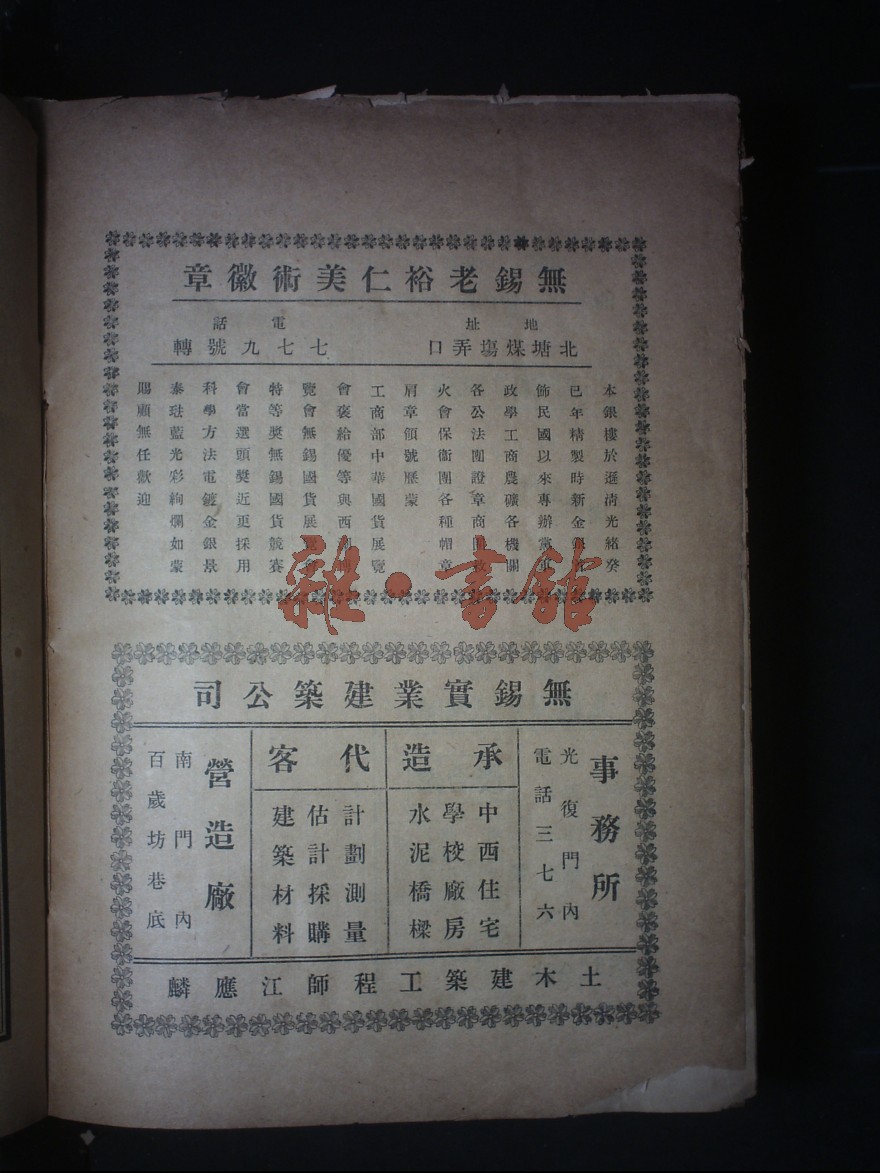 無錫老裕仁美術徽章
地址
北塘煤塲弄口
電話
七七九號轉
本銀樓於遜清光緒癸
已年精製時新金銀首
飾民國以來專辦黨軍
政學工商農礦各機關
各公法團證章商團救
火會保衞團各種帽章
肩章領號歷蒙
工商部中華國貨展覽
會褒給優等與西湖博
覽會無錫國貨展覽會
特等奬無錫國貨競賽
會當選頭奬近更採用
科學方法電鍍金銀景
泰琺藍光彩絢爛如蒙
賜顧無任歡迎
雜·書館
無錫實業建築公司
事務所
光復門內
電話三七六
承造
中西住宅
學校廠房
水泥橋樑
代客
計劃測量
估計採購
建築材料
營造廠
南門內
百歲坊巷底
土木建築工程師江應麟